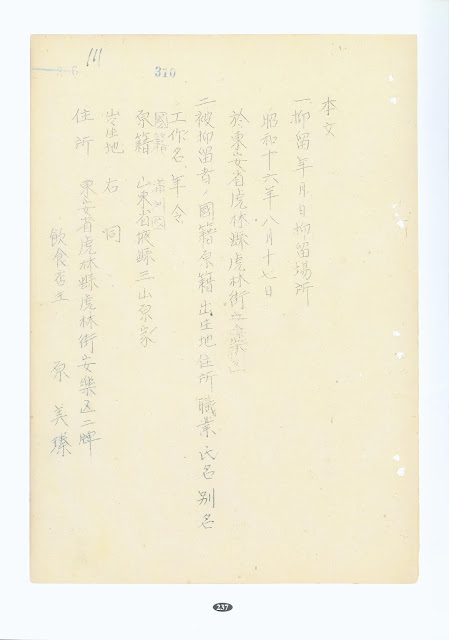 111
370
本文
一抑留年月日抑留場所
昭和十六年八月十七日
於東安省虎林縣虎林街
二被抑留者ノ國籍原籍出生地住所職業氏名別名
工作名年令
國籍 滿洲國
原籍 山東省掖縣三山原家
出生地 右同
住所 東安省虎林縣虎林街安樂区二牌
飲食店主 原美臻
237